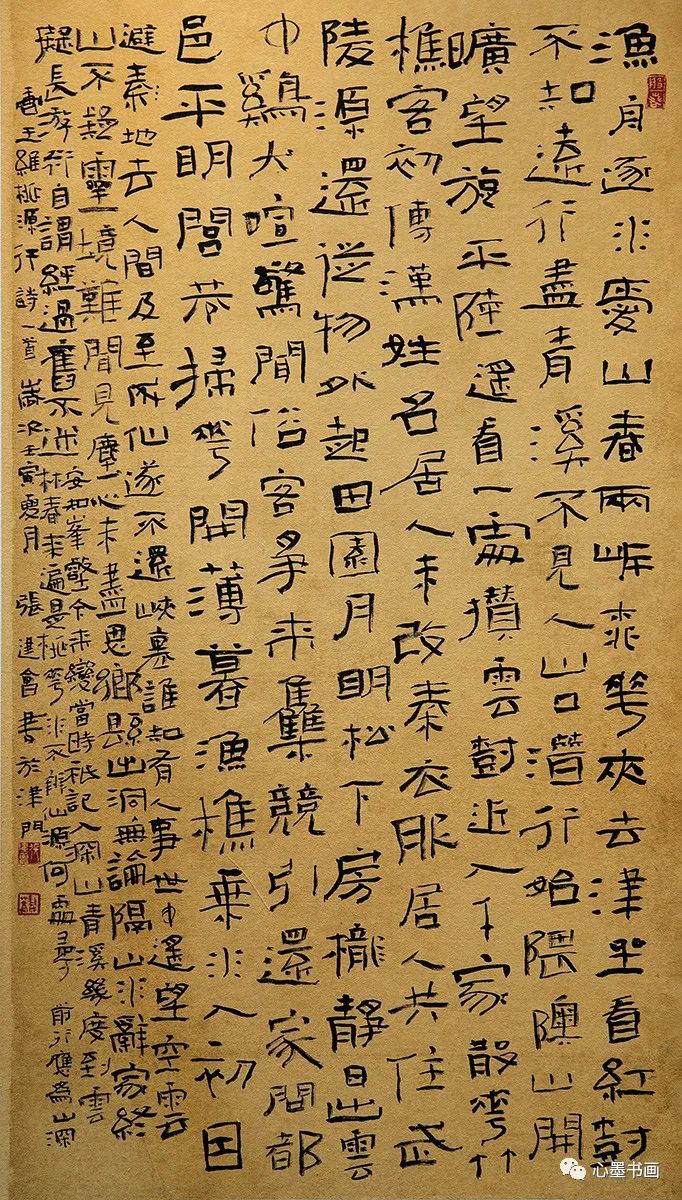 漁舟逐水愛山春兩岸桃花夾去津坐看紅樹
不知遠行盡青溪不見人山口潛行始隈隩山開
曠望旋平陸遙看一處攢雲樹近入千家散花竹
樵客初傳漢姓名居人未改秦衣服居人共住武
陵源還從物外起田園月明松下房櫳靜日出雲
中鷄犬喧驚聞俗客爭來集競引還家問都
邑平明閭巷掃花開薄暮漁樵乘水入初因
避秦地去人間及至成仙遂不還峽裏誰知有人事世中遙望空雲
山不疑靈境難聞見塵心未盡思鄉縣出洞無論隔山水辭家終
擬長游衍自謂經過舊不迷安知峯壑今來變當時祇記入深山青溪幾度到雲
林春來遍是桃花水不辨仙源何處尋
王維桃源行詩一首歲次壬寅夏月張進會書於津門
前行應為山深
心墨书画